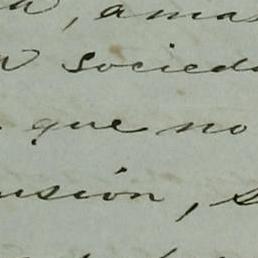 , ama
socied
que no
usión, s